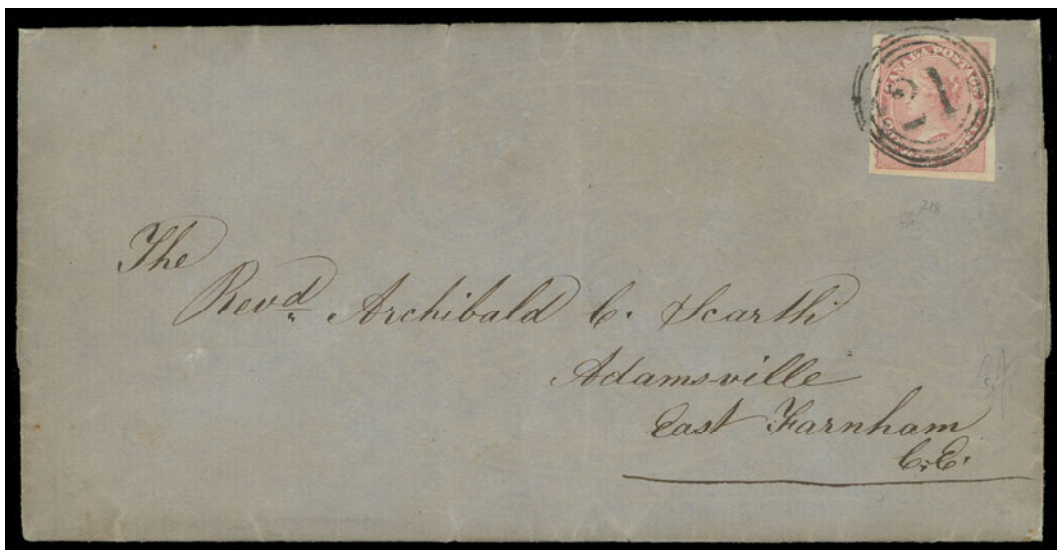 CANADA POSTAGE
21
218
The
Revd. Archibald C. Scarth
Adamsville
East Farnham
C.E.